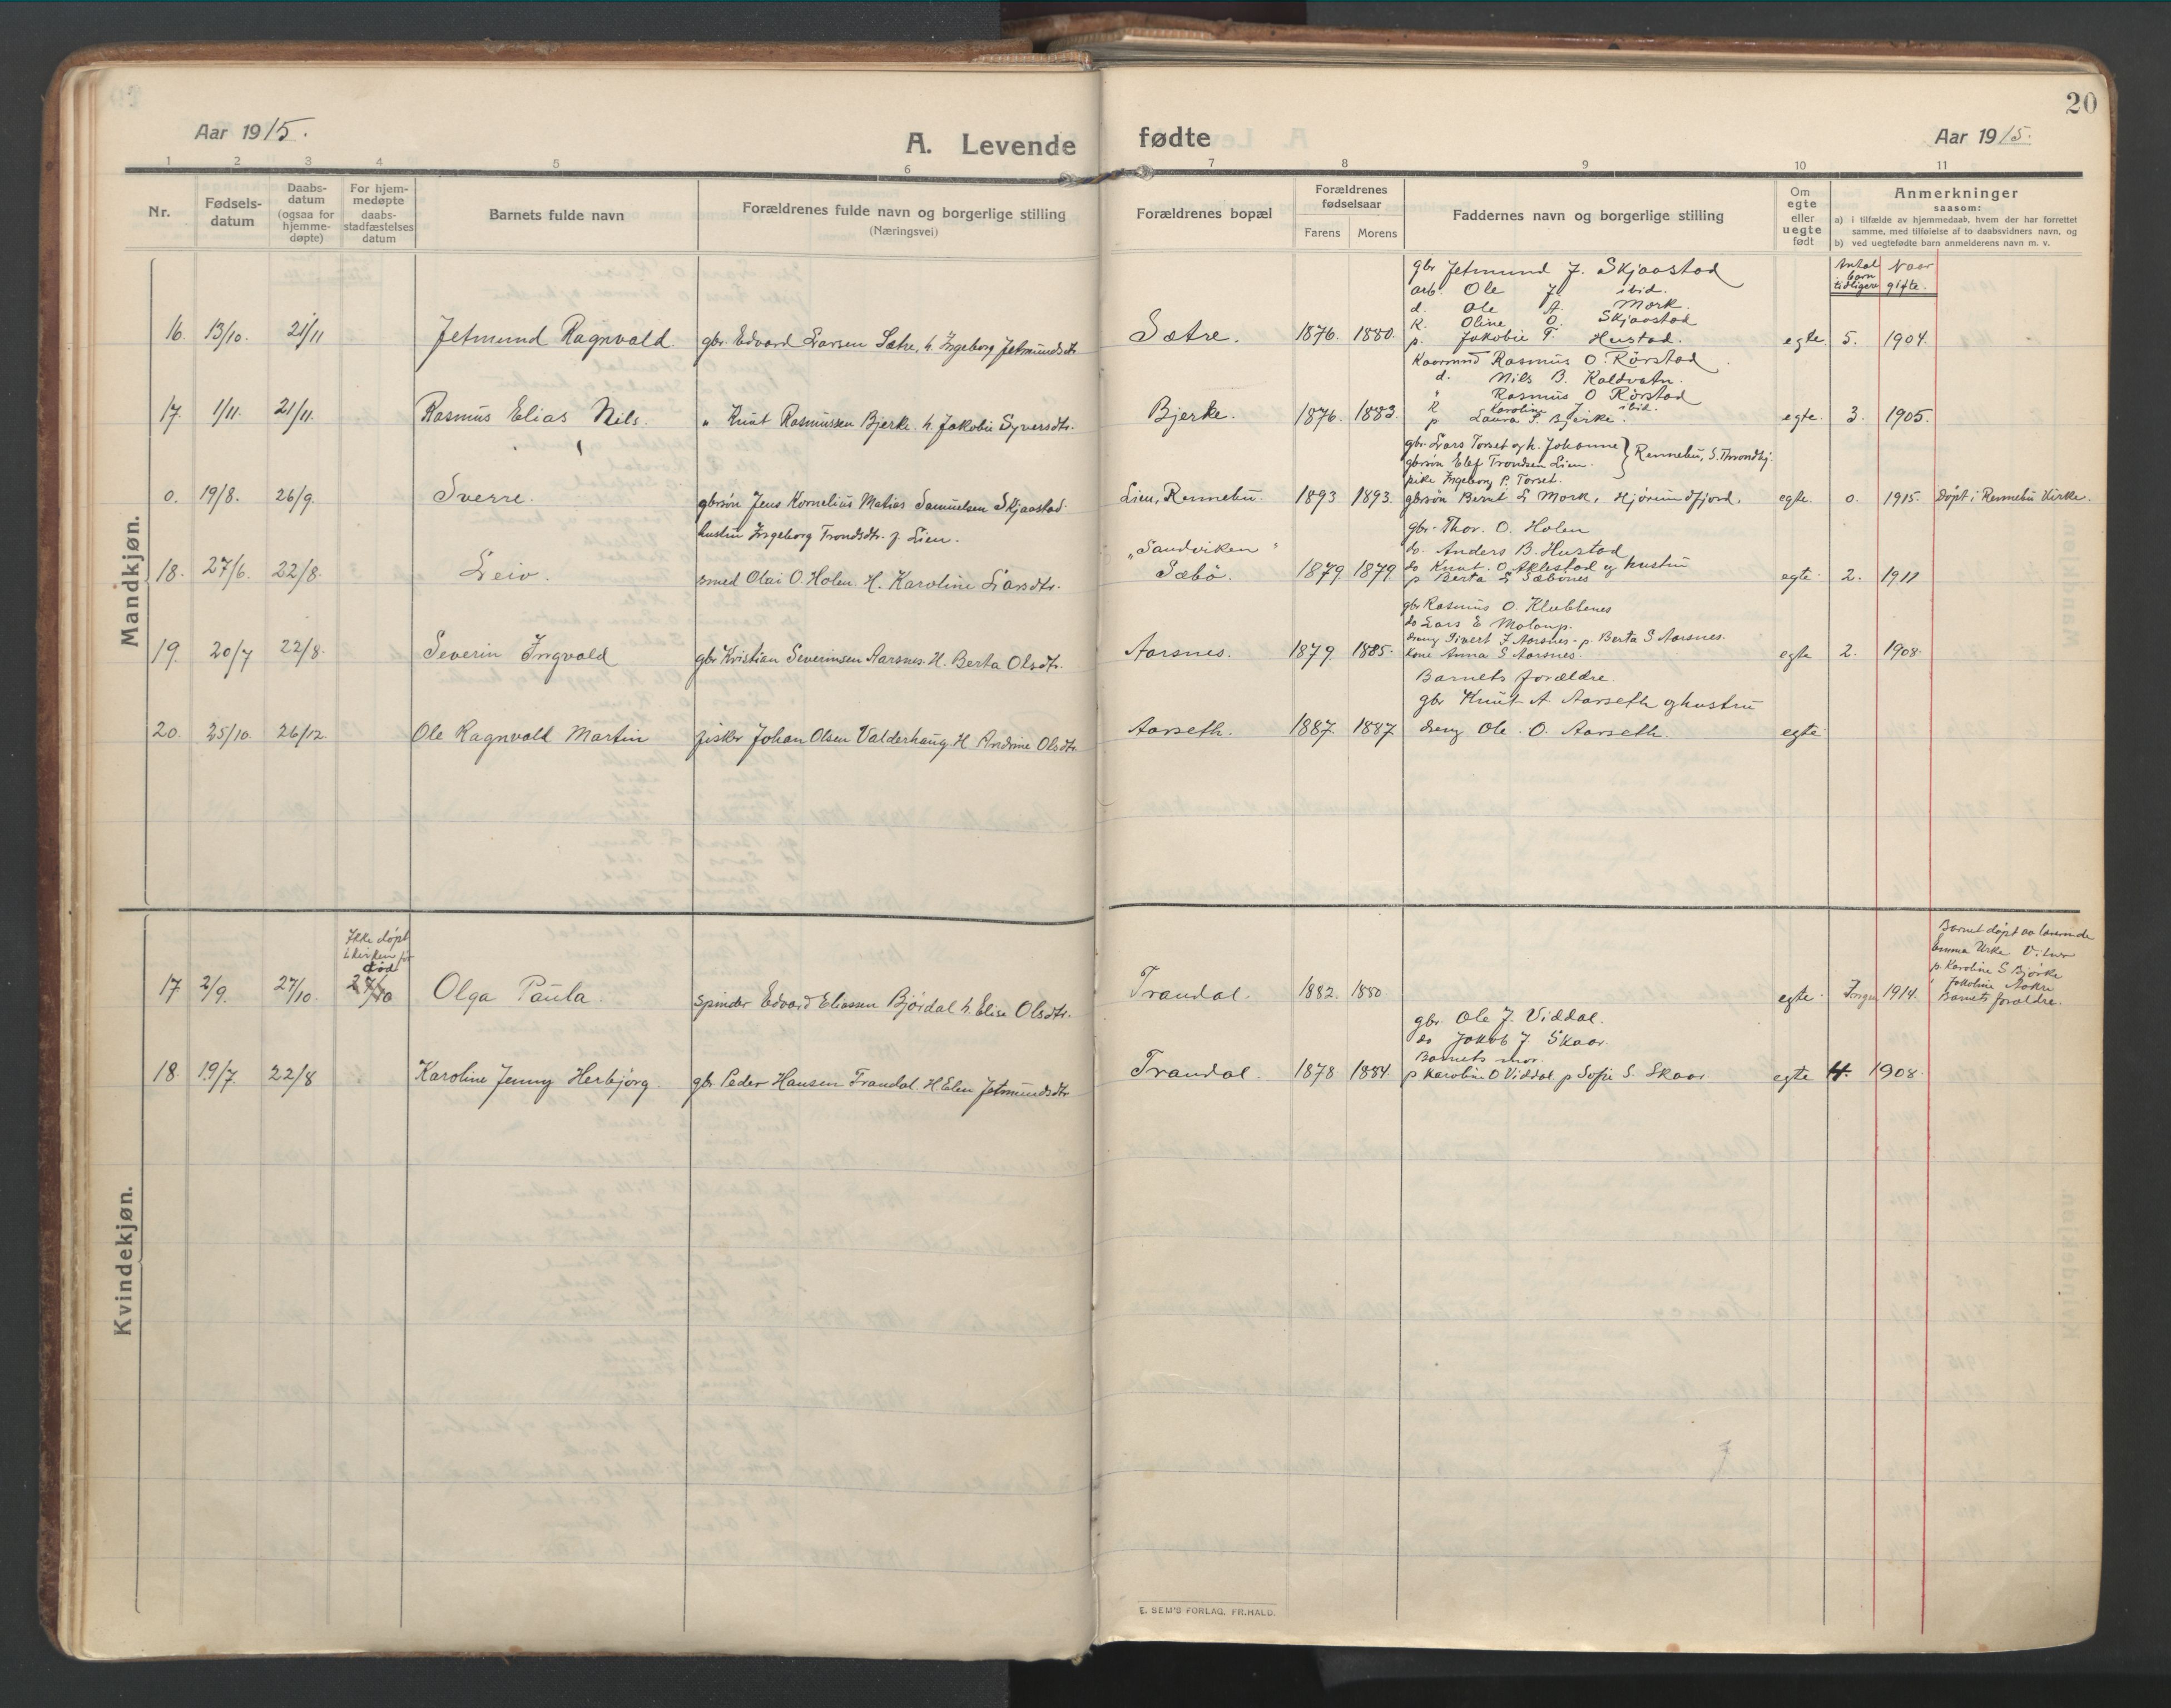 20
Aar 1915.
A. Levende fødte
Aar 1915.
1 2 3 4 5 6 7 8 9 10 11
Nr.
Fødsels-
datum
Daabs-
datum
(ogsaa for
hjemme-
døpte)
For hjem-
medøpte
daabs-
stadfæstelses
datum
Barnets fulde navn
Forældrenes fulde navn og borgerlige stilling
(Næringsvei)
Forældrenes bopæl
Forældrenes
fødselsaar
Farens Morens
Faddernes navn og borgerlige stilling
Om
egte
eller
uegte
født
Anmerkninger
saasom:
a) i tilfælde av hjemmedaab, hvem der har forrettet
samme, med tilføielse af to daabsvidners navn, og
b) ved uegtefødte barn anmelderens navn m. v.
Antal
barn
tidligere
Naar
gifte.
Mandkjøn.
gbr Jetmund J. Skjaastad
arb. Ole J. ibid.
d. Ole A. Mork.
K. Oline O. Skjaastad
p. Jakobie T. Hustad.
16. 13/10. 21/11 Jetmund Ragnvald. gbr. Edvard Larsen Sætre, h. Ingeborg Jetmundsdtr. Sætre. 1876. 1880. egte. 5. 1904.
Kaarmand Rasmus O. Rörstad
d. Nils B. Kaldvatn.
" Rasmus O Rörstad
K Karoline J. ibid.
p Laura P. Bjerke.
17. 1/11. 21/11. Rasmus Elias Nils. " Knut Rasmussen Bjerke. h. Jakobie Syversdtr. Bjerke. 1876. 1883. egte. 3. 1905.
gbr. Lars Torset og h. Johanne
gbrsøn Elef Trondsen Lien.
pike Ingeborg P. Torset.
Rennebu, S. Throndhj.
0. 19/8. 26/9. Sverre. gbrsøn Jens Kornelius Matias Samuelsen Skjaastad. Lien, Rennebu. 1893 1893. gbrsøn Bernt L Mork, Hjørundfjord. egte. 0. 1915. Döpt i Rennebu Kirke.
hustru Ingeborg Trondsdtr. f. Lien.
gbr. Thor. O. Holen
do. Anders B. Hustad
do Knut. O. Aklestad og hustru
p Berta L Sæbönes
18. 27/6. 22/8. Leiv. smed Olai O. Holen. H. Karoline Larsdtr. "Sandviken" Sæbö. 1879 1879 egte. 2. 1911
gbr Rasmus O. Klubbenes
do Lars E Molaup.
dreng Sivert J Aarsnes - p. Berta S Aarsnes.
kone Anna S Aarsnes.
19. 20/7 22/8. Severin Ingvald gbr Kristian Severinsen Aarsnes. H. Berta Olsdtr. Aarsnes. 1879. 1885. egte 2. 1908.
Barnets forældre.
gbr Knut A. Aarseth og hustru
20. 25/10. 26/12. Ole Ragnvald Martin fisker Johan Olsen Valderhaug. H Andrine Olsdtr. Aarseth. 1887. 1887 dreng Ole. O. Aarseth. egte
Kvindekjøn.
Ikke döpt
i kirken før
död
Barnet döpt av lærerinde
Emma Urke
p. Karoline S Bjørke
Jakobine
Barnets forældre.
17. 2/9. 27/10. 27/10 Olga Paula. spinder Edvard Eliassen Bjørdal h. Elise Olsdtr. Trandal. 1882. 1880 egte. Ingen 1914.
gbr. Ole J. Viddal.
do Jakob J. Skaar.
Barnets mor.
18. 19/7. 22/8 Karoline Jenny Herbjörg. gbr. Peder Hansen Trandal. H. Elen Jetmundsdtr Trandal. 1878 1884. p Karoline O Viddal p Sofie S. Skaar egte 4. 1908.
E. SEM'S FORLAG. FR.HALD.